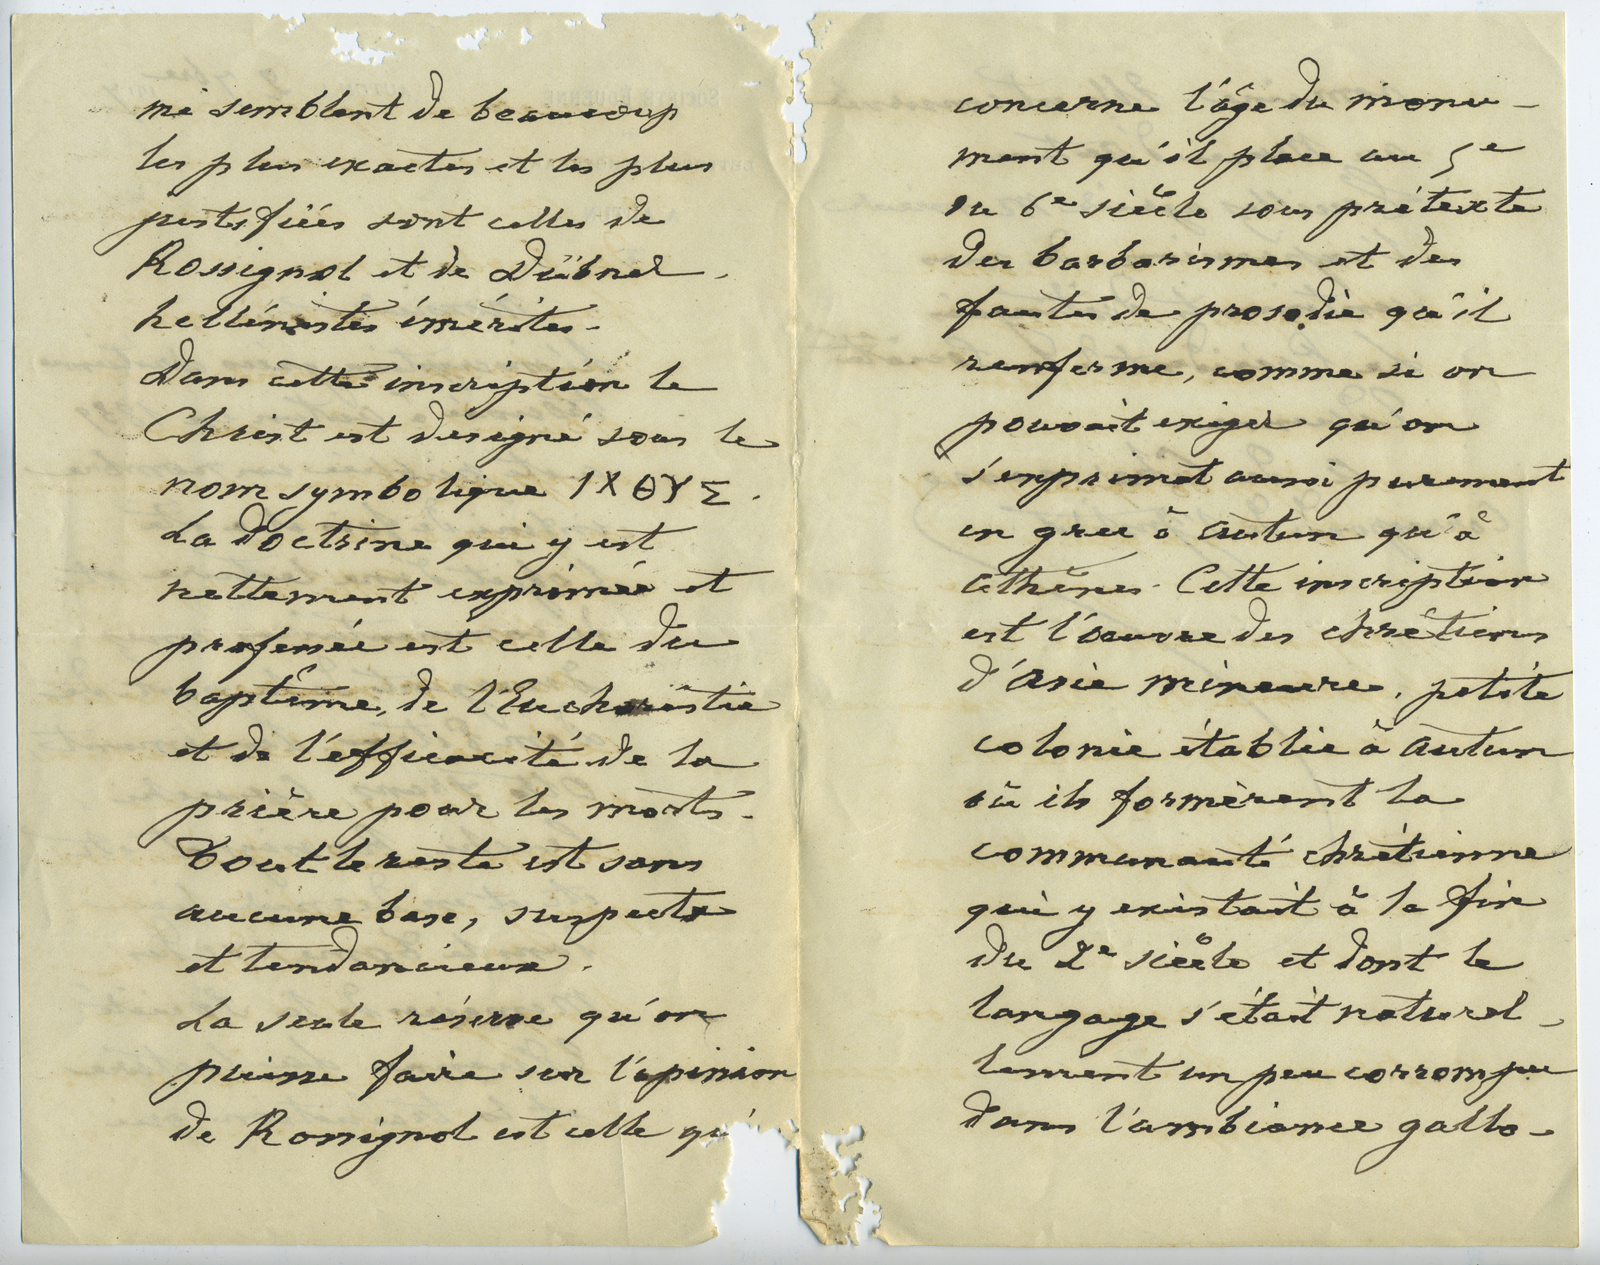 me semblent de beaucoup
les plus exactes et les plus
justifiées sont celles de
Rossignol et de Dübner
hellénistes émérites.
Dans cette inscription le
Christ est designé sous le
nom symbolique ΙΧΘΥΣ.
La doctrine qui y est
nettement exprimée et
professée est celle du
baptême, de l'Eucharistie
et de l'efficacité de la
prière pour les morts.
Tout le reste est sans
aucune base, suspecte
et tendancieux.
La seule réserve qu'on
puisse faire sur l'opinion
de Rossignol est celle qui
concerne l'âge du monu-
ment qu'il place au 5e
ou 6e siècle sous prétexte
des barbarismes et des
fautes de prosodie qu'il
renferme, comme si on
pouvait exiger qu'on
s'exprimat aussi purement
en grec à Autun qu'à
Athènes. Cette inscription
est l'oeuvre des chrétiens
d'Asie mineure, petite
colonie établie à Autun
où ils formèrent la
communauté chrétienne
qui y existait à la fin
du 2e siècle et dont le
langage s'était naturel-
lement un peu corrompu
dans l'ambiance gallo-